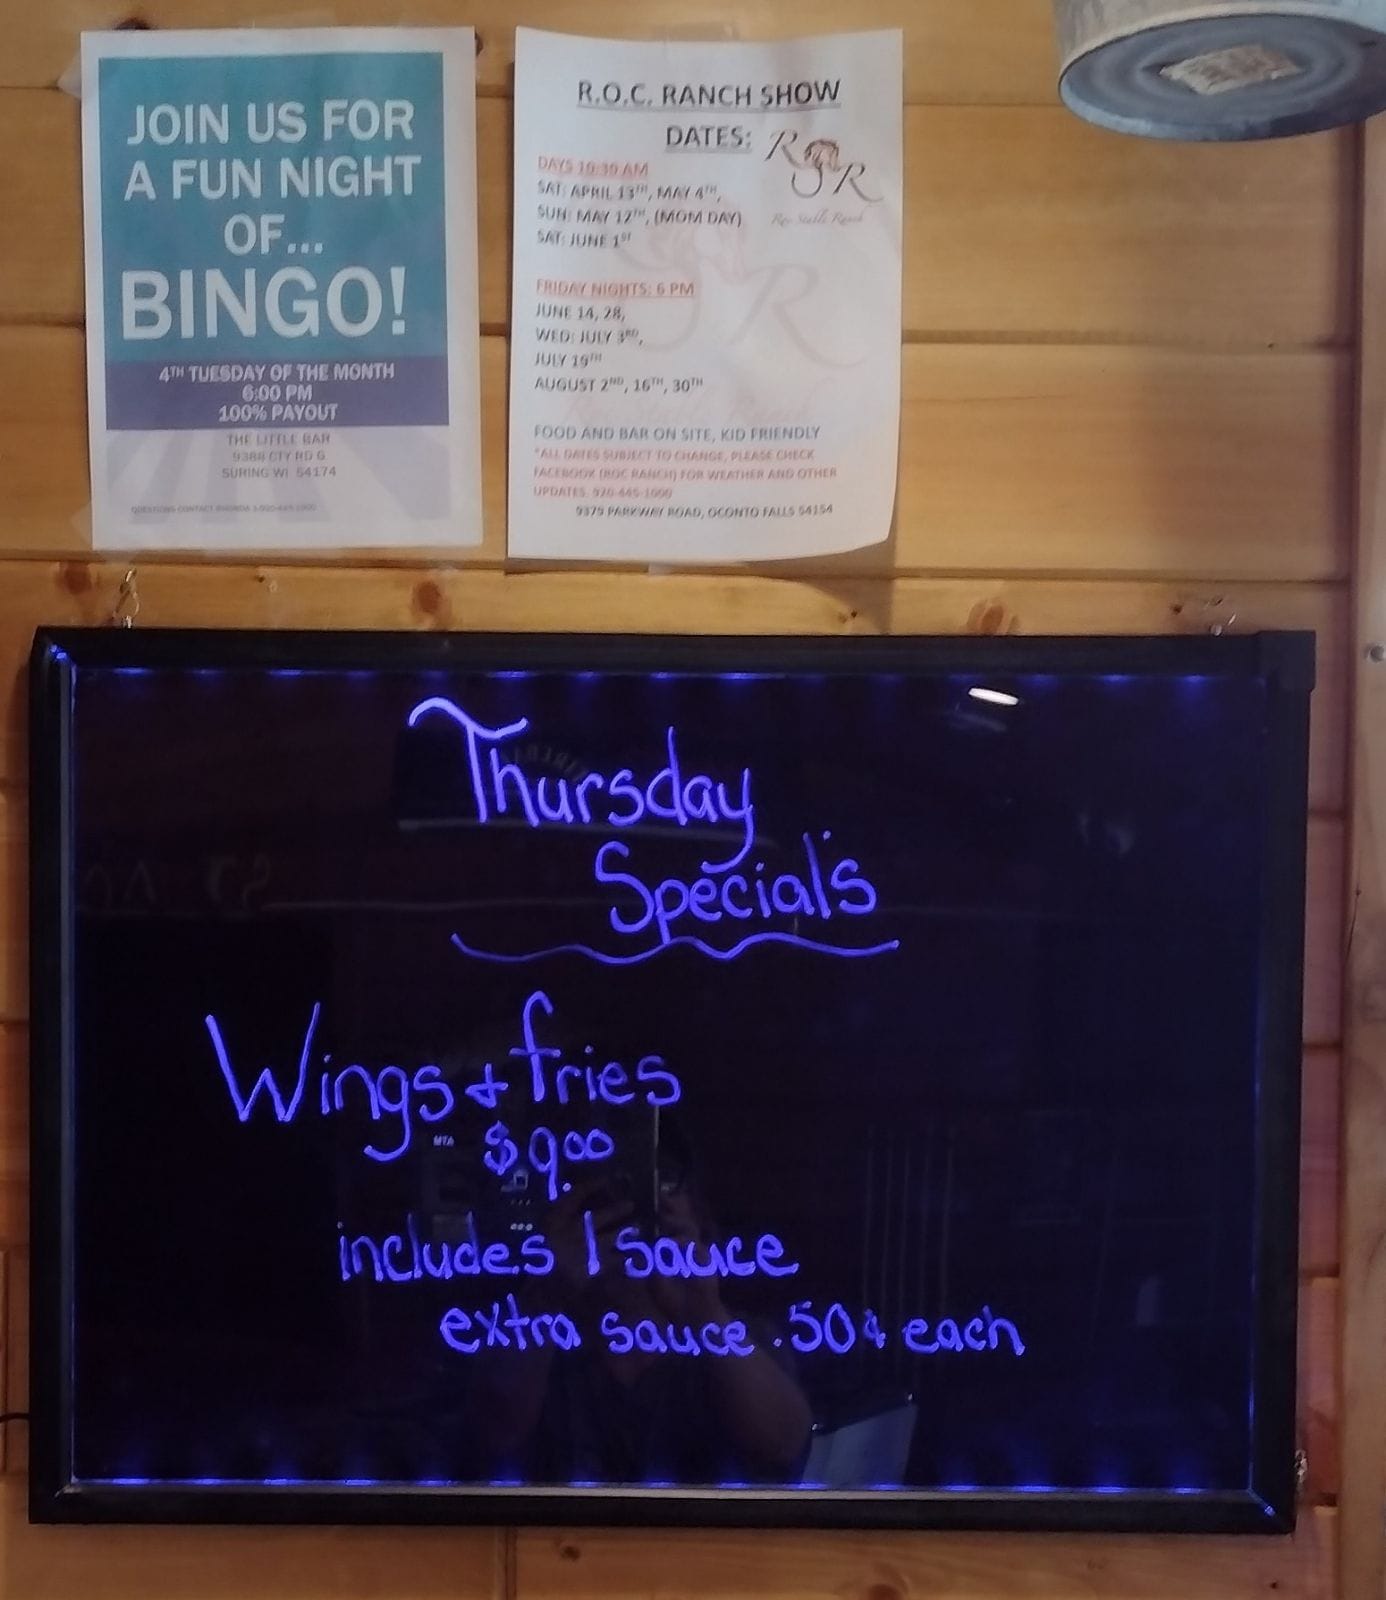 JOIN US FOR
A FUN NIGHT
OF...
BINGO!
4TH TUESDAY OF THE MONTH
6:00 PM
100% PAYOUT
THE LITTLE BAR
9388 CTY RD G
SURING WI 54174
QUESTIONS CONTACT RHONDA
R.O.C. RANCH SHOW
DATES:
R R
Roc Stable Ranch
DAYS 10:30 AM
SAT: APRIL 13TH, MAY 4TH,
SUN: MAY 12TH, (MOM DAY)
SAT: JUNE 1ST
FRIDAY NIGHTS: 6 PM
JUNE 14, 28,
WED: JULY 3RD,
JULY 19TH
AUGUST 2ND, 16TH, 30TH
FOOD AND BAR ON SITE, KID FRIENDLY
*ALL DATES SUBJECT TO CHANGE, PLEASE CHECK
FACEBOOK (ROC RANCH) FOR WEATHER AND OTHER
UPDATES. 920-445-1000
9379 PARKWAY ROAD, OCONTO FALLS 54154
Thursday
Special's
Wings & fries
$9.00
includes 1 sauce
extra sauce .50¢ each